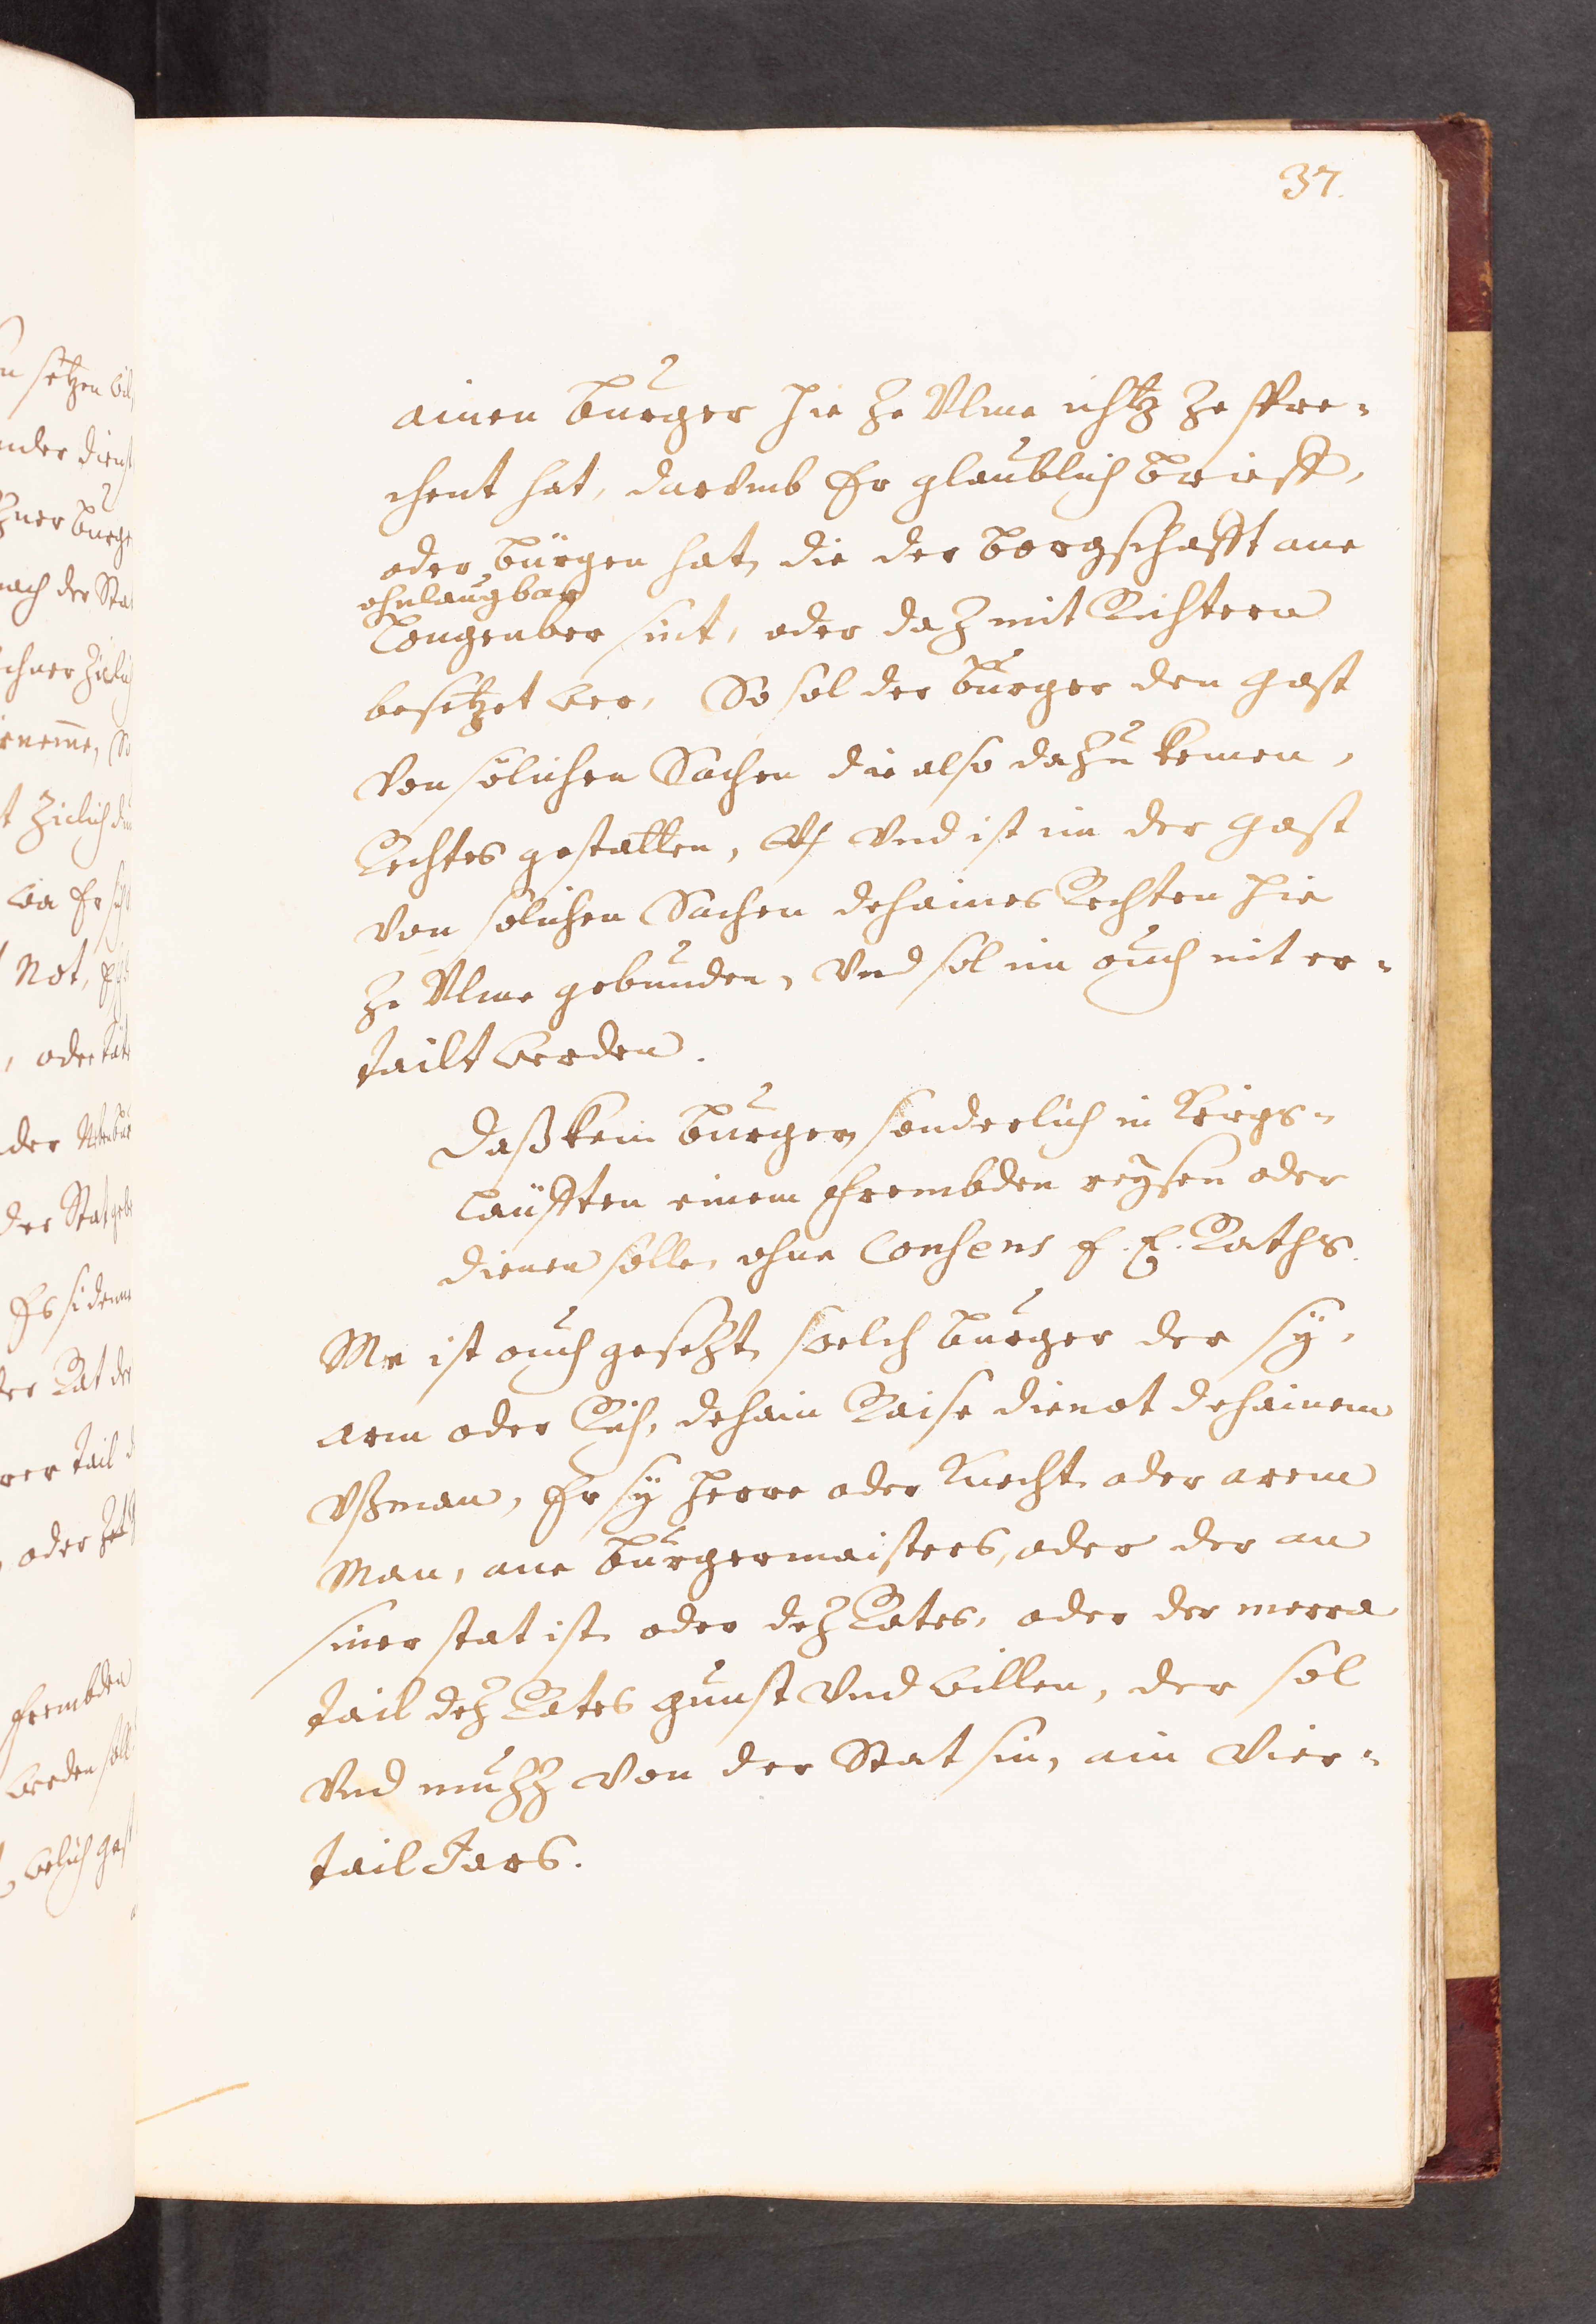 37.
ainen burger hie ze Ulme ichtz ze spre-
chent hat, darvmb Er glaublich brieff,
oder bürgen hat, die der borgschafft ane
ohnlaugbar
Longenber sint, oder daz mit Richtern
besetzet wer, So sol der burger den gast
von sölichen Sachen die also dazu komen,
Rechtes gestatten, vnd ist im der gast
von sölichen Sachen dehaines Rechten hie
ze Ulme gebunden, vnd sol im ouch nit er-
tailt werden.
Daß kein burger, sonderlich in Kriegs-
läufften einem Frembden reysen oder
dienen solle, ohne Consens E. E. Raths.
Me ist ouch gesetzt, swelch burger der sy,
arm oder Rich, dehain Raise dienot dehainem
vßman, Er sy herre oder Knecht, oder arm
Man, ane burgermaisters, oder der an
siner stat ist, oder dez Rates, oder der merra
tail dez Rates gunst vnd willen, der sol
vnd muzz von der Stat sin, ain vier-
tail Jars.